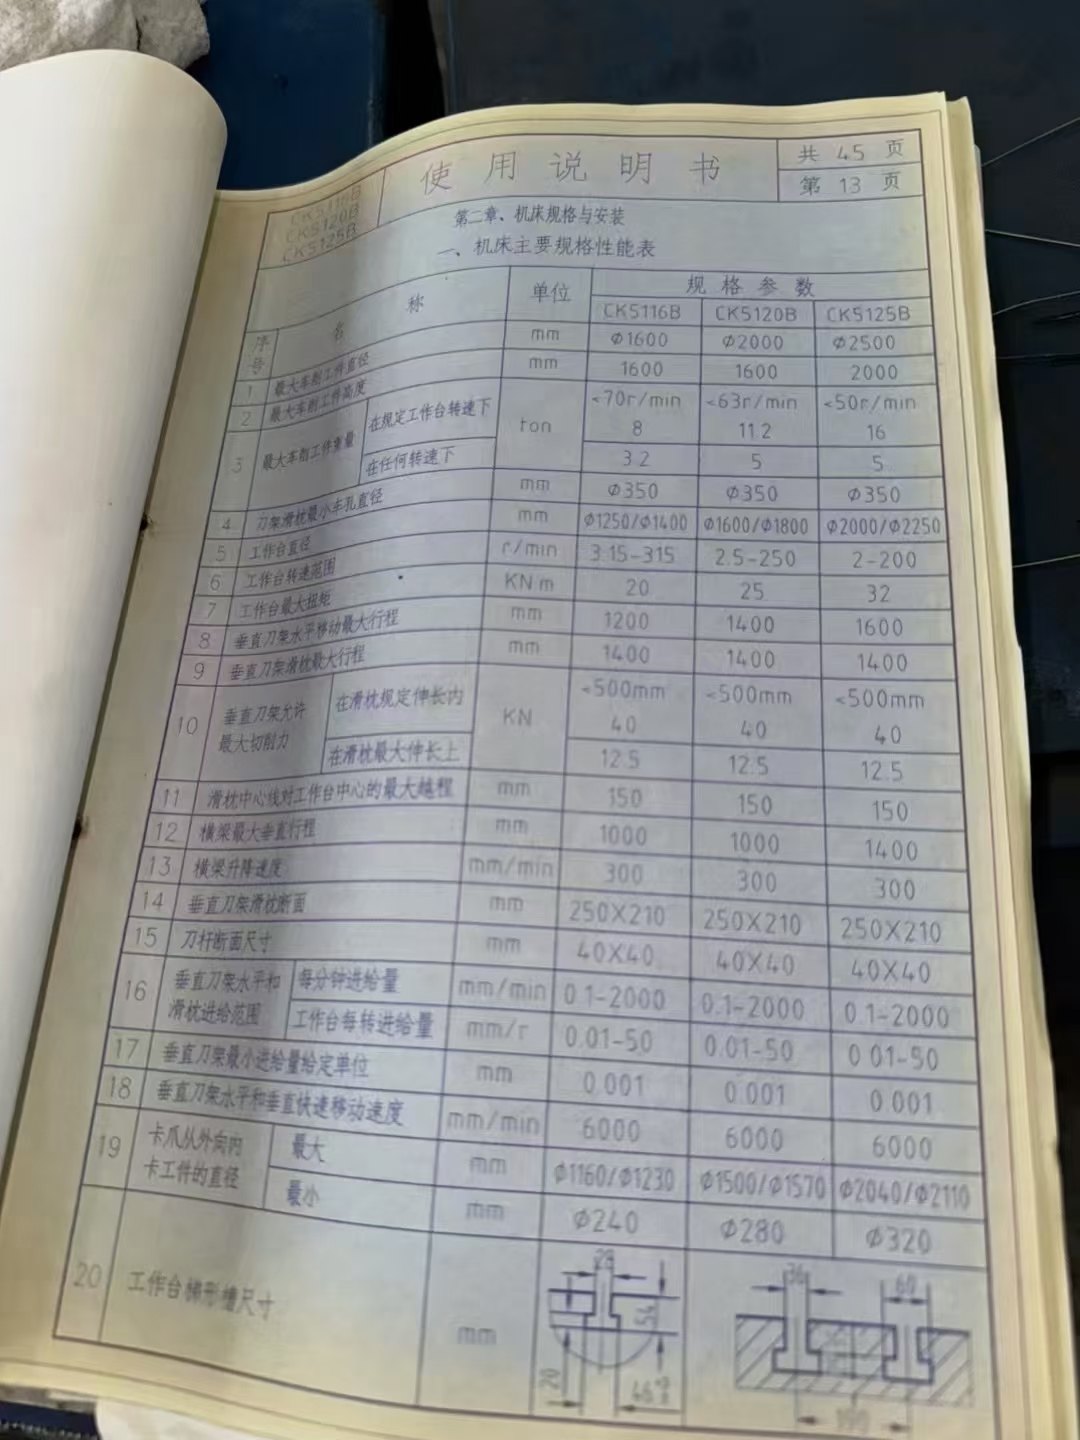 CK5116B
CK5120B
CK5125B
使用说明书
共 45 页
第 13 页
第二章、机床规格与安装
一、机床主要规格性能表
序号 名称 单位 规格参数
CK5116B CK5120B CK5125B
1 最大车削工件直径 mm Φ1600 Φ2000 Φ2500
2 最大车削工件高度 mm 1600 1600 2000
3 最大车削工件重量 在规定工作台转速下 ton <70r/min <63r/min <50r/min
8 11.2 16
在任何转速下 3.2 5 5
4 刀架滑枕最小车孔直径 mm Φ350 Φ350 Φ350
5 工作台直径 mm Φ1250/Φ1400 Φ1600/Φ1800 Φ2000/Φ2250
6 工作台转速范围 r/min 3.15-315 2.5-250 2-200
7 工作台最大扭矩 KN m 20 25 32
8 垂直刀架水平移动最大行程 mm 1200 1400 1600
9 垂直刀架滑枕最大行程 mm 1400 1400 1400
10 垂直刀架允许最大切削力 在滑枕规定伸长内 KN <500mm <500mm <500mm
40 40 40
在滑枕最大伸长上 12.5 12.5 12.5
11 滑枕中心线对工作台中心的最大越程 mm 150 150 150
12 横梁最大垂直行程 mm 1000 1000 1400
13 横梁升降速度 mm/min 300 300 300
14 垂直刀架滑枕断面 mm 250X210 250X210 250X210
15 刀杆断面尺寸 mm 40X40 40X40 40X40
16 垂直刀架水平和滑枕进给范围 每分钟进给量 mm/min 0.1-2000 0.1-2000 0.1-2000
工作台每转进给量 mm/r 0.01-50 0.01-50 0.01-50
17 垂直刀架最小进给量给定单位 mm 0.001 0.001 0.001
18 垂直刀架水平和垂直快速移动速度 mm/min 6000 6000 6000
19 卡爪从外向内卡工件的直径 最大 mm Φ1160/Φ1230 Φ1500/Φ1570 Φ2040/Φ2110
最小 mm Φ240 Φ280 Φ320
20 工作台梯形槽尺寸 mm
28 36 60
20 46